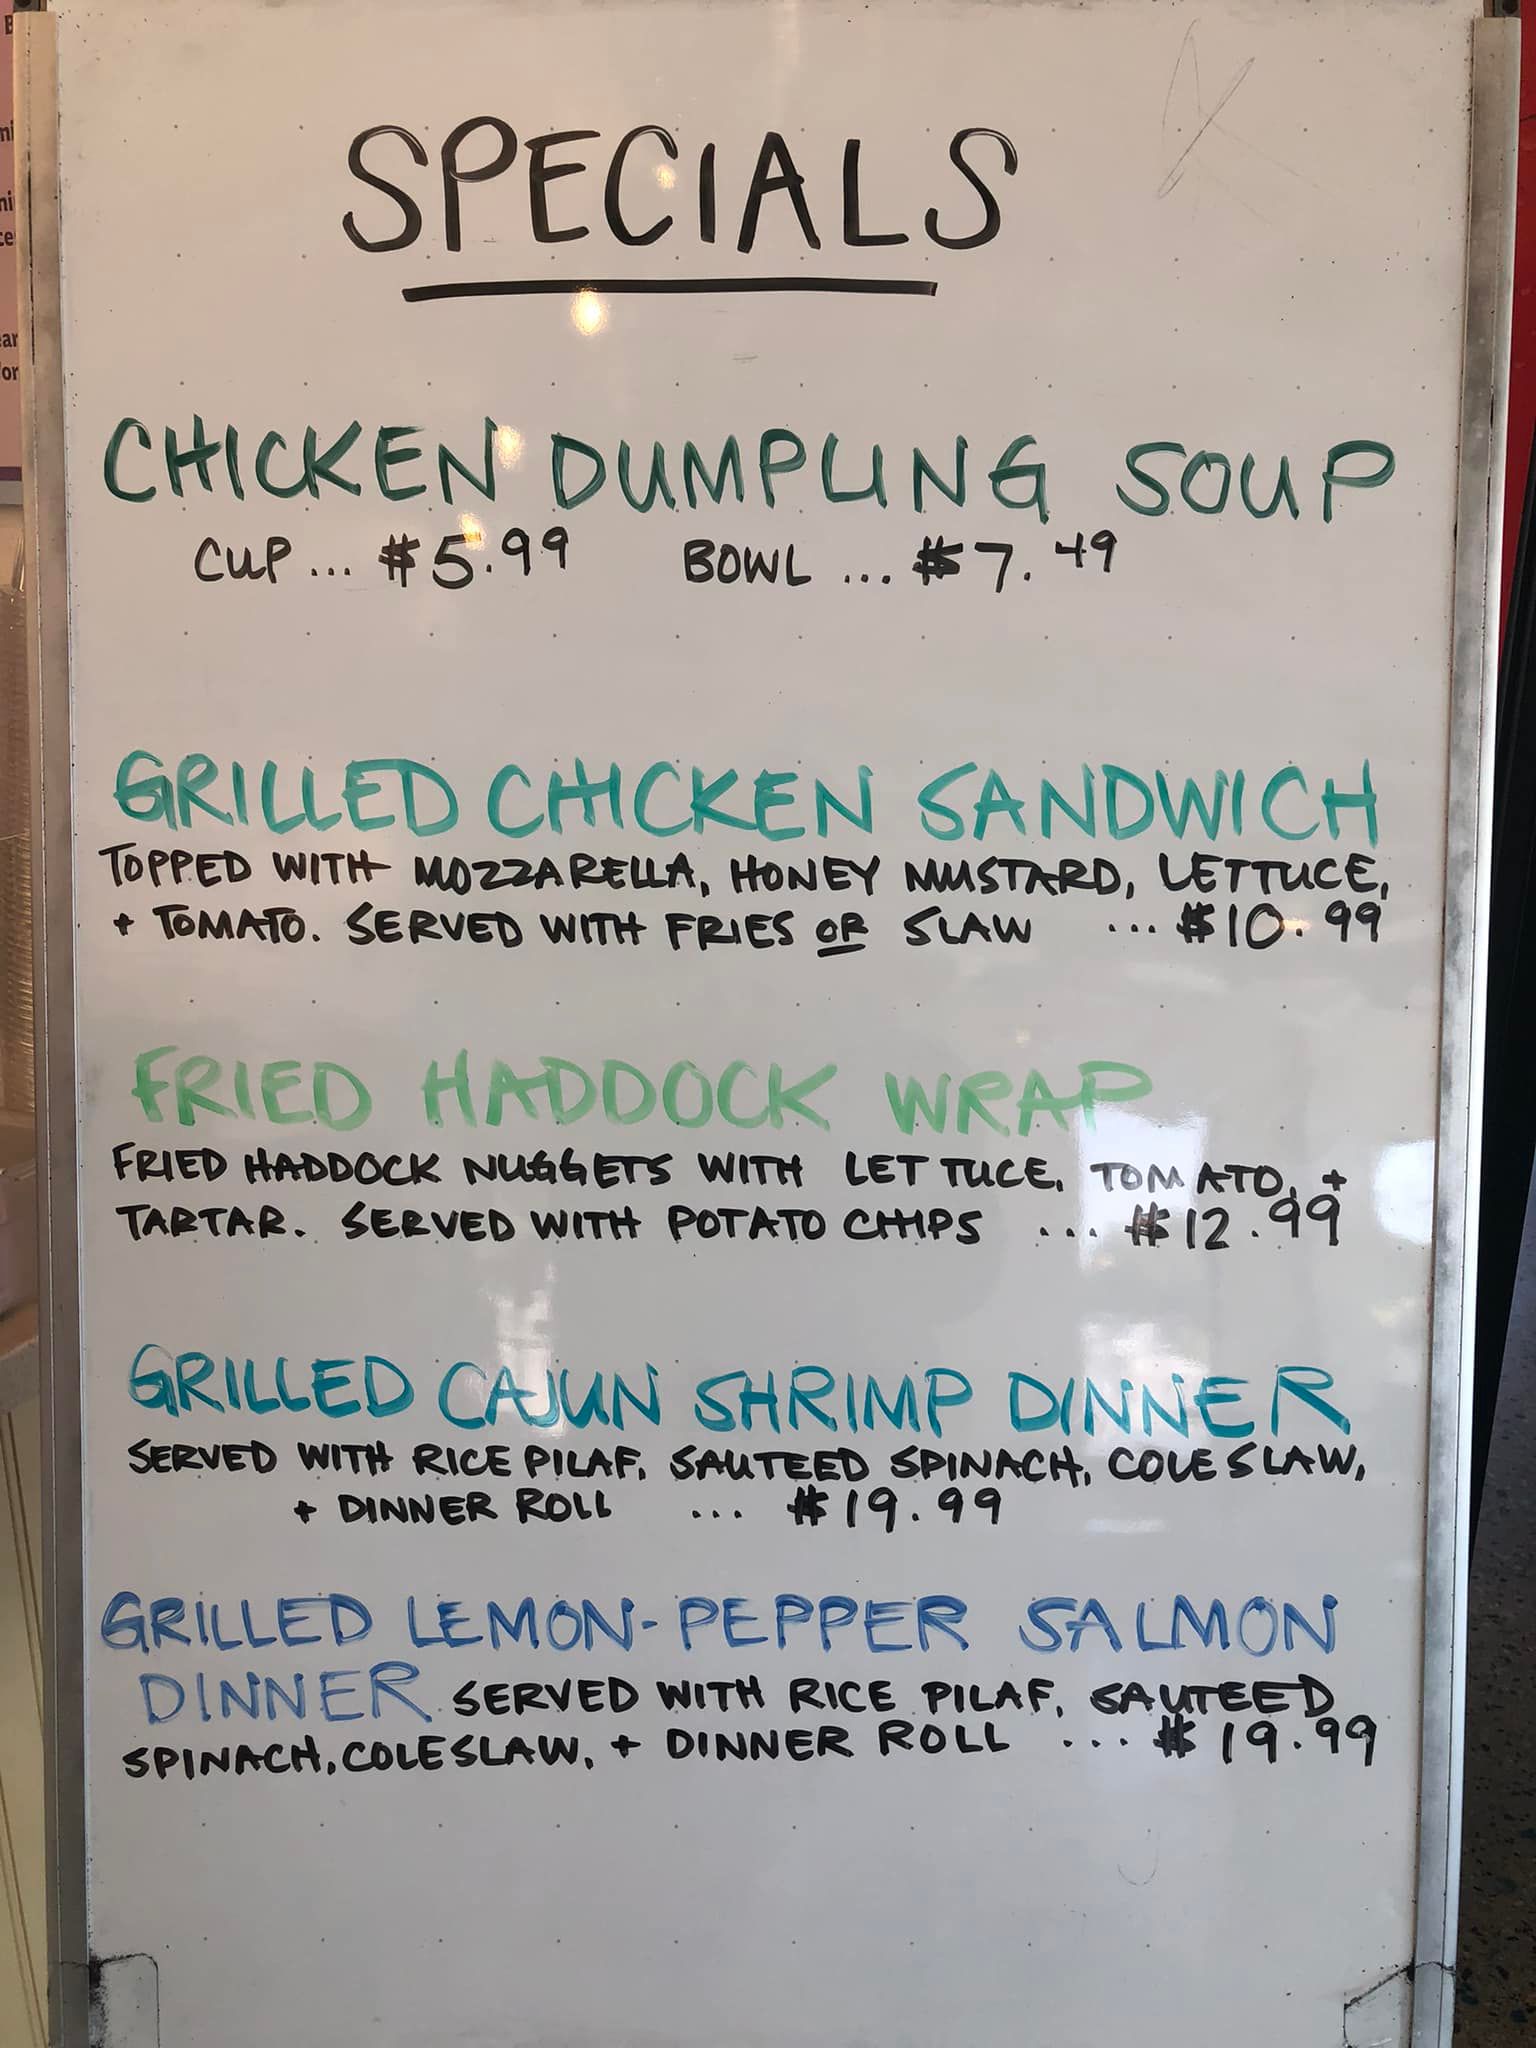 SPECIALS
CHICKEN DUMPLING SOUP
CUP ... $5.99 BOWL ... $7.49
GRILLED CHICKEN SANDWICH
TOPPED WITH MOZZARELLA, HONEY MUSTARD, LETTUCE,
+ TOMATO. SERVED WITH FRIES OR SLAW ... $10.99
FRIED HADDOCK WRAP
FRIED HADDOCK NUGGETS WITH LETTUCE, TOMATO, +
TARTAR. SERVED WITH POTATO CHIPS ... $12.99
GRILLED CAJUN SHRIMP DINNER
SERVED WITH RICE PILAF, SAUTEED SPINACH, COLESLAW,
+ DINNER ROLL ... $19.99
GRILLED LEMON-PEPPER SALMON
DINNER SERVED WITH RICE PILAF, SAUTEED
SPINACH, COLESLAW, + DINNER ROLL ... $19.99